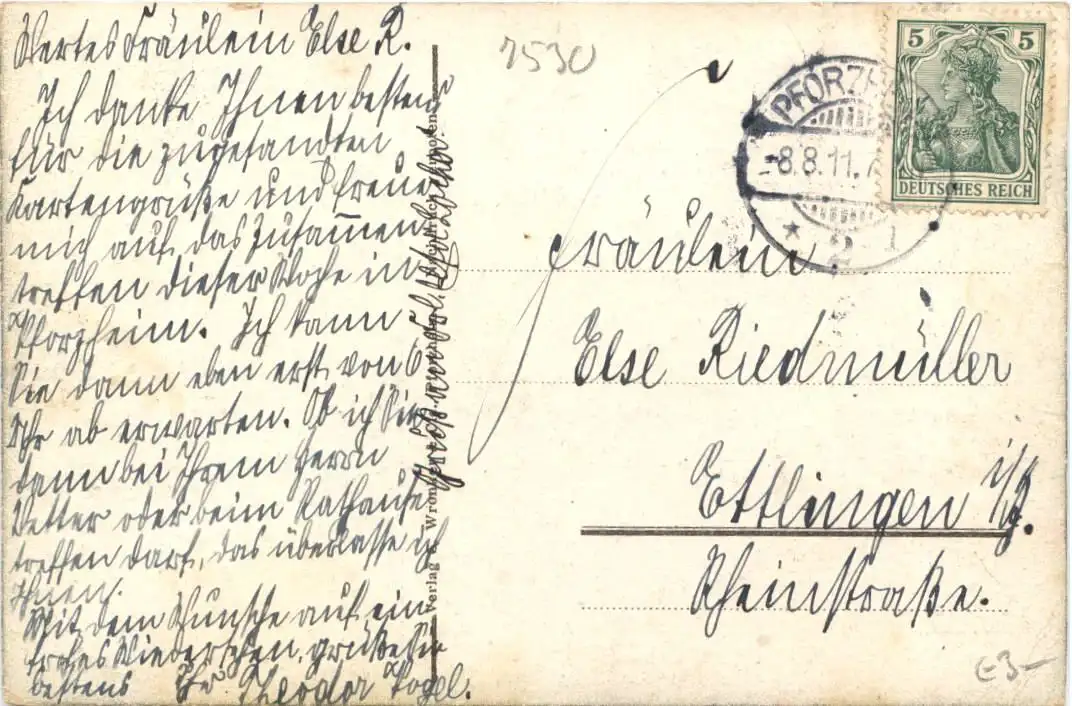 Wertes Fräulein Else R.
Ich danke Ihnen bestens
für die zugesandten
Kartengrüße und freue
mich auf das Zusammen-
treffen dieser Woche in
Pforzheim. Ich kann
Sie dann eben erst von 6
Uhr ab erwarten. Ob ich Sie
dann bei Ihrem Herrn
Vetter oder beim Rathause
treffen darf, das überlasse ich
Ihnen.
Mit dem Wunsche auf ein
frohes Wiedersehen, grüße Sie
bestens Ihr Theodor Vogel.
Gruß an Frl.
Verlag v. Wron
2530
PFORZH
-8.8.11.7
* 2 1
5 5
DEUTSCHES REICH
Fräulein
Else Riedmüller
Ettlingen i/B.
Rheinstraße.
E3-